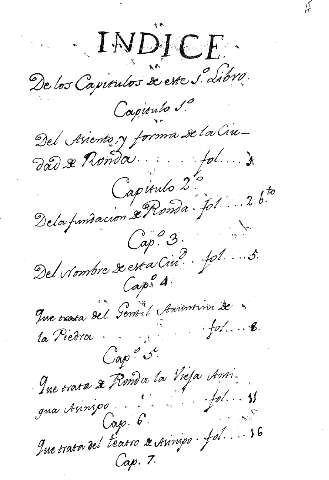 INDICE
De los Capitulos de este 1.º Libro.
Capitulo 1.º
Del Asiento, y forma de la Ciu-
dad de Ronda . . . . . . fol. . . . 1.
Capitulo 2.º
De la fundacion de Ronda . fol . . . 2. bto
Cap.º 3.
Del Nombre de esta Ciud. . . fol. . . . 5.
Cap.º 4.
Que trata del Gentil de
la Piedra . . . . . . fol . . . . 8.
Cap.º 5.
Que trata de Ronda la Vieja Anti-
gua Asinipo . . . . . . fol. . . . 11
Cap. 6.
Que trata del teatro de Asinipo . fol. . . . 16
Cap. 7.